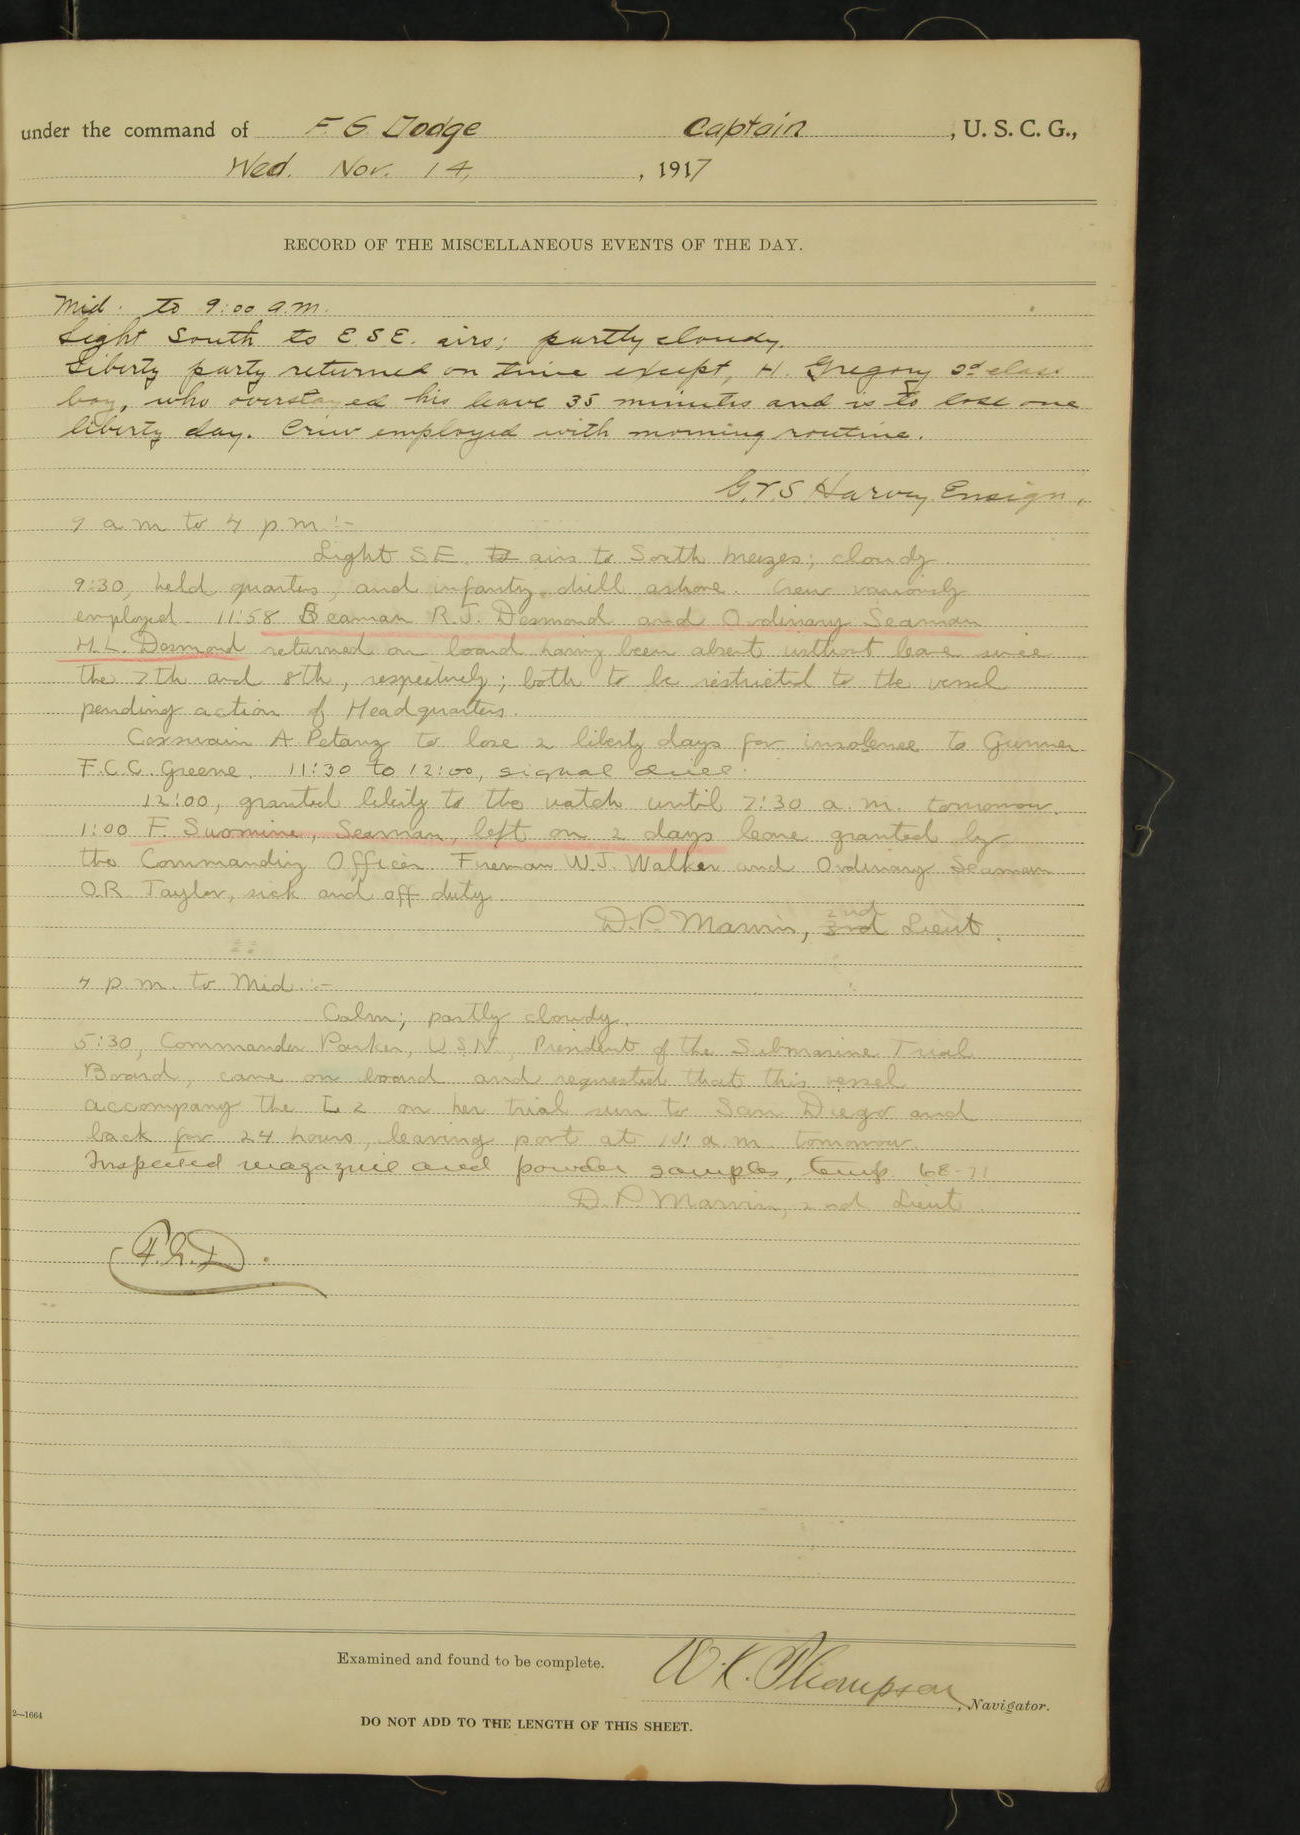 under the command of F G Dodge Captain, U. S. C. G.,
Wed. Nov. 14, 1917
RECORD OF THE MISCELLANEOUS EVENTS OF THE DAY.
Mid. to 9:00 a.m.
Light South to E S E. airs; partly cloudy.
Liberty party returned on time except, H. Gregory class
boy, who overstayed his leave 35 minutes and is to lose one
liberty day. Crew employed with morning routine.
Harvey Ensign.
9 a m to 4 p.m.:-
Light SE. to airs to South breezes; cloudy.
9:30, held quarters, and infantry drill ashore. Crew variously
employed. 11:58 Seaman R.J. Desmond and Ordinary Seaman
H.L. Desmond returned on board having been absent without leave since
the 7th and 8th, respectively; both to be restricted to the vessel
pending action of Headquarters.
Coxswain A Petanz to lose 2 liberty days for insolence to Gunner
F.C.C. Greene. 11:30 to 12:00, signal drill.
12:00, granted liberty to the watch until 7:30 a.m. tomorrow.
1:00 F. Suomine, Seaman, left on 2 days leave granted by
the Commanding Officer. Fireman W.J. Walker and Ordinary Seaman
O.R. Taylor, sick and off duty.
D.P. Marvin, 3rd 2nd Lieut.
4 p.m. to Mid.:-
Calm; partly cloudy.
5:30, Commander Parker, U S N, President of the Submarine Trial
Board, came on board and requested that this vessel
accompany the L 2 on her trial run to San Diego and
back for 24 hours, leaving port at a.m. tomorrow.
Inspected magazine and powder samples, temp. 68-71
D.P. Marvin, 2nd Lieut.
F.G.D.
Examined and found to be complete.
W. K. Thompson, Navigator.
2—1664
DO NOT ADD TO THE LENGTH OF THIS SHEET.